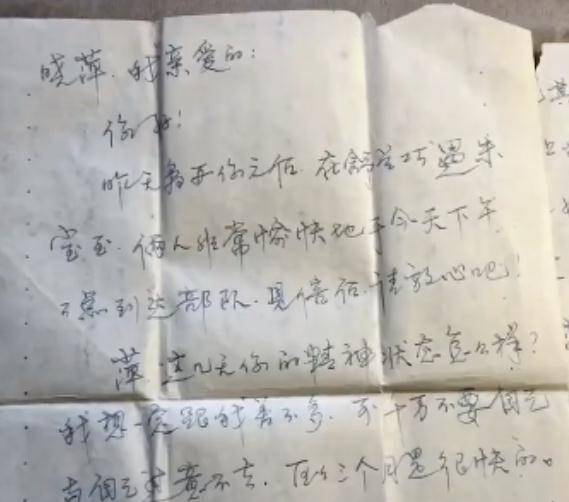 晓萍，我亲爱的：
你好！
昨天离开你之后，在船上巧遇朱
宝玉，俩人非常愉快地于今天下午
2点到达部队，见信后请放心吧！
萍，这几天你的精神状态怎么样？
我想一定跟我差不多，可千万不要自己
与自己过意不去，在外三个月是很快的。